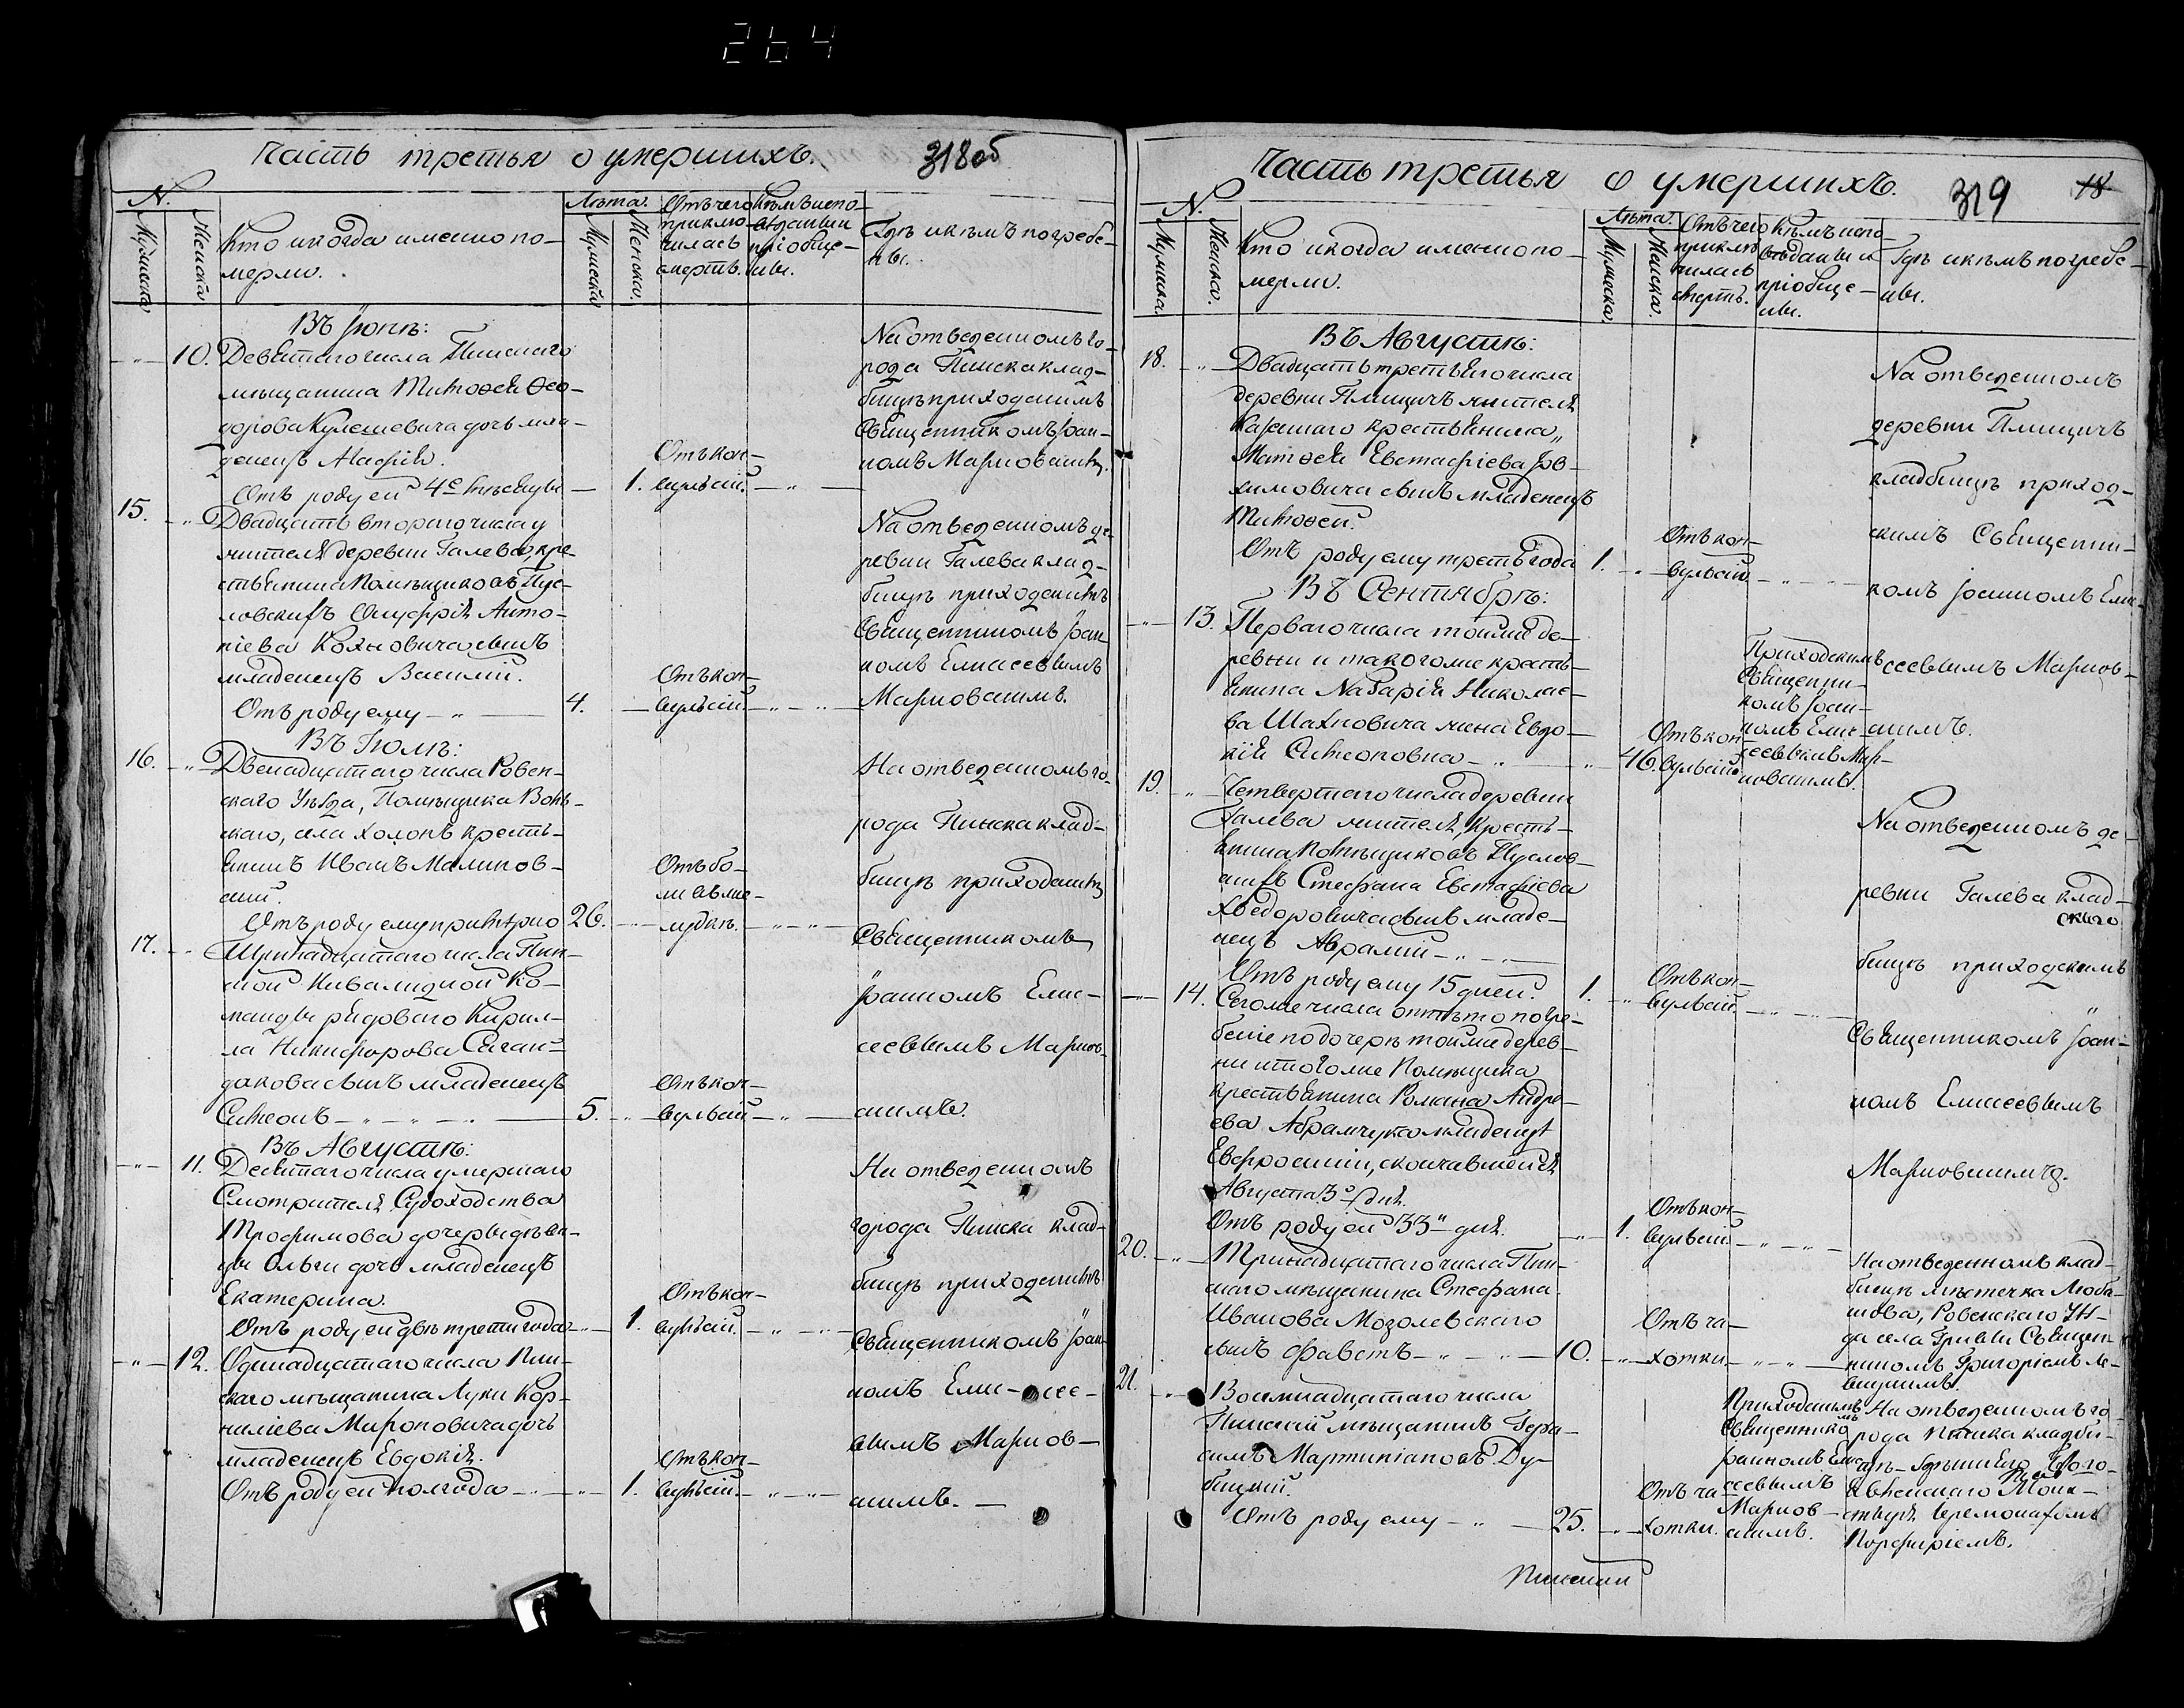 264
Часть третья о умершихъ.
318об
N.
Мужеска
Женска
Кто и когда именно по-
мерли.
Лѣта.
Мужеска
Женска.
Отъ чего
приклю-
чилась
смерть.
Кѣмъ испо-
вѣданы и
пріобще-
ны.
Гдѣ и кѣмъ погребе-
ны.
Въ Іюнѣ:
10. Девятаго числа Пинскаго
мѣщанина Тимоѳея Ѳео-
дорова Кулешевича дочь мла-
денецъ
Отъ роду ей 4е мѣсяцы
1.
Отъ кон-
вульсій.
На отведенномъ го-
рода Пинска клад-
бищѣ приходскимъ
Священникомъ Іоан-
номъ
15. Двадцать втораго числа у
жителя деревни Галева, кре-
стьянина Помѣщиковъ Пус-
ловскихъ Онуфрія Анто-
ніева Кохновича сынъ
младенецъ Василій.
Отъ роду ему
4.
Отъ кон-
вульсій.
На отведенномъ де-
ревни Галева клад-
бищѣ приходскимъ
Священникомъ Іоан-
номъ Елисеевымъ
Въ Іюлѣ:
16. Двенадцатаго числа Ровен-
скаго Уѣзда, Помѣщика
скаго, села крестъ-
янинъ Иванъ Малинов-
скій.
Отъ роду ему примѣрно
26.
Отъ бо-
ли въ же-
лудкѣ.
На отведенномъ го-
рода Пинска клад-
бищѣ приходскимъ
Священникомъ
Іоанномъ Елис-
сеевымъ
скимъ.
17. Тринадцатаго числа Пин-
ской Инвалидной Ко-
манды рядоваго Кирил-
ла Никифорова
дакова сынъ младенецъ
Симеонъ
5.
Отъ кон-
вульсій
Въ Августѣ:
11. Десятаго числа умершаго
Смотрителя Судоходства
Трофимова дочери дѣви-
цы Ольги дочь младенецъ
Екатерина.
Отъ роду ей двѣ трети года
1.
Отъ кон-
вульсій.
На отведенномъ
города Пинска клад-
бищѣ приходскимъ
Священникомъ Іоан-
номъ Елис-сее-
вымъ
скимъ.
12. Одинадцатаго числа Пин-
скаго мѣщанина Луки Кор-
ниліева Мироновича дочь
младенецъ Евдокія.
Отъ роду ей полгода
1.
Отъ кон-
вульсій.
Часть третья о умершихъ.
319
18
N.
Мужеска.
Женска.
Кто и когда именно по-
мерли.
Лѣта.
Мужеска.
Женска.
Отъ чего
приклю-
чилась
смерть.
Кѣмъ испо-
вѣданы и
пріобще-
ны.
Гдѣ и кѣмъ погребе-
ны.
Въ Августѣ:
18. Двадцать третьяго числа
деревни Плищичъ жителя
Казеннаго крестьянина,,
Матѳея Евстафіева
химовича сынъ младенецъ
Тимоѳей.
Отъ роду ему треть года
1.
Отъ кон-
вульсій.
На отведенномъ
деревни Плищичъ
кладбищѣ приход-
скимъ Священни-
комъ Іоанномъ Елис-
сеевымъ
скимъ.
Въ Сентябрѣ:
13. Перваго числа тойже де-
ревни и такогоже кресть-
янина Назарія Николае-
ва Шахновича жена Евдо-
кія Симеоновна
46.
Отъ кон-
вульсій
Приходскимъ
Священни-
комъ Іоан-
номъ Елис-
сеевымъ
19. Четвертаго числа деревни
Галева жителя, кресть-
янина Помѣщиковъ Пуслов-
скихъ Стефана Евстафіева
Хведоровича сынъ младе-
нецъ Аврамій
Отъ роду ему 15 дней.
1.
Отъ кон-
вульсій.
На отведенномъ де-
ревни Галева клад-
бищѣ приходскимъ
Священникомъ Іоан-
номъ Елисеевымъ
14. Тогоже числа отпѣто погре-
беніе по дочерѣ тойже дерев-
ни и тогоже Помѣщика
крестьянина Романа Андре-
ева Абрамчука младенцѣ
Евфросиніи, скончавшейся
Августа 3го дня.
Отъ роду ей 33 дня.
1.
Отъ кон-
вульсій
20. Тринадцатаго числа Пин-
скаго мѣщанина Стефана
Иванова Мозолевскаго
сынъ Фавстъ
10.
Отъ ча-
хотки.
На отведенномъ клад-
бищѣ мѣстечка Люба-
шова, Ровенскаго Уѣ-
да села Гривы Священ-
никомъ Григоріемъ Ле-
21. Восемнадцатаго числа
Пинскій мѣщанинъ Гера-
симъ Мартиніановъ Ду-
бицкій.
Отъ роду ему
25.
Отъ ча-
хотки.
Приходскимъ
Священнико
мъ
Іоанномъ Елис-
сеевымъ
скимъ.
На отведенномъ го-
рода Пинска кладби-
щѣ Пинскаго Бого-
явленскаго Мона-
стыря Іеромонахомъ
Порфиріемъ.
Пинскій